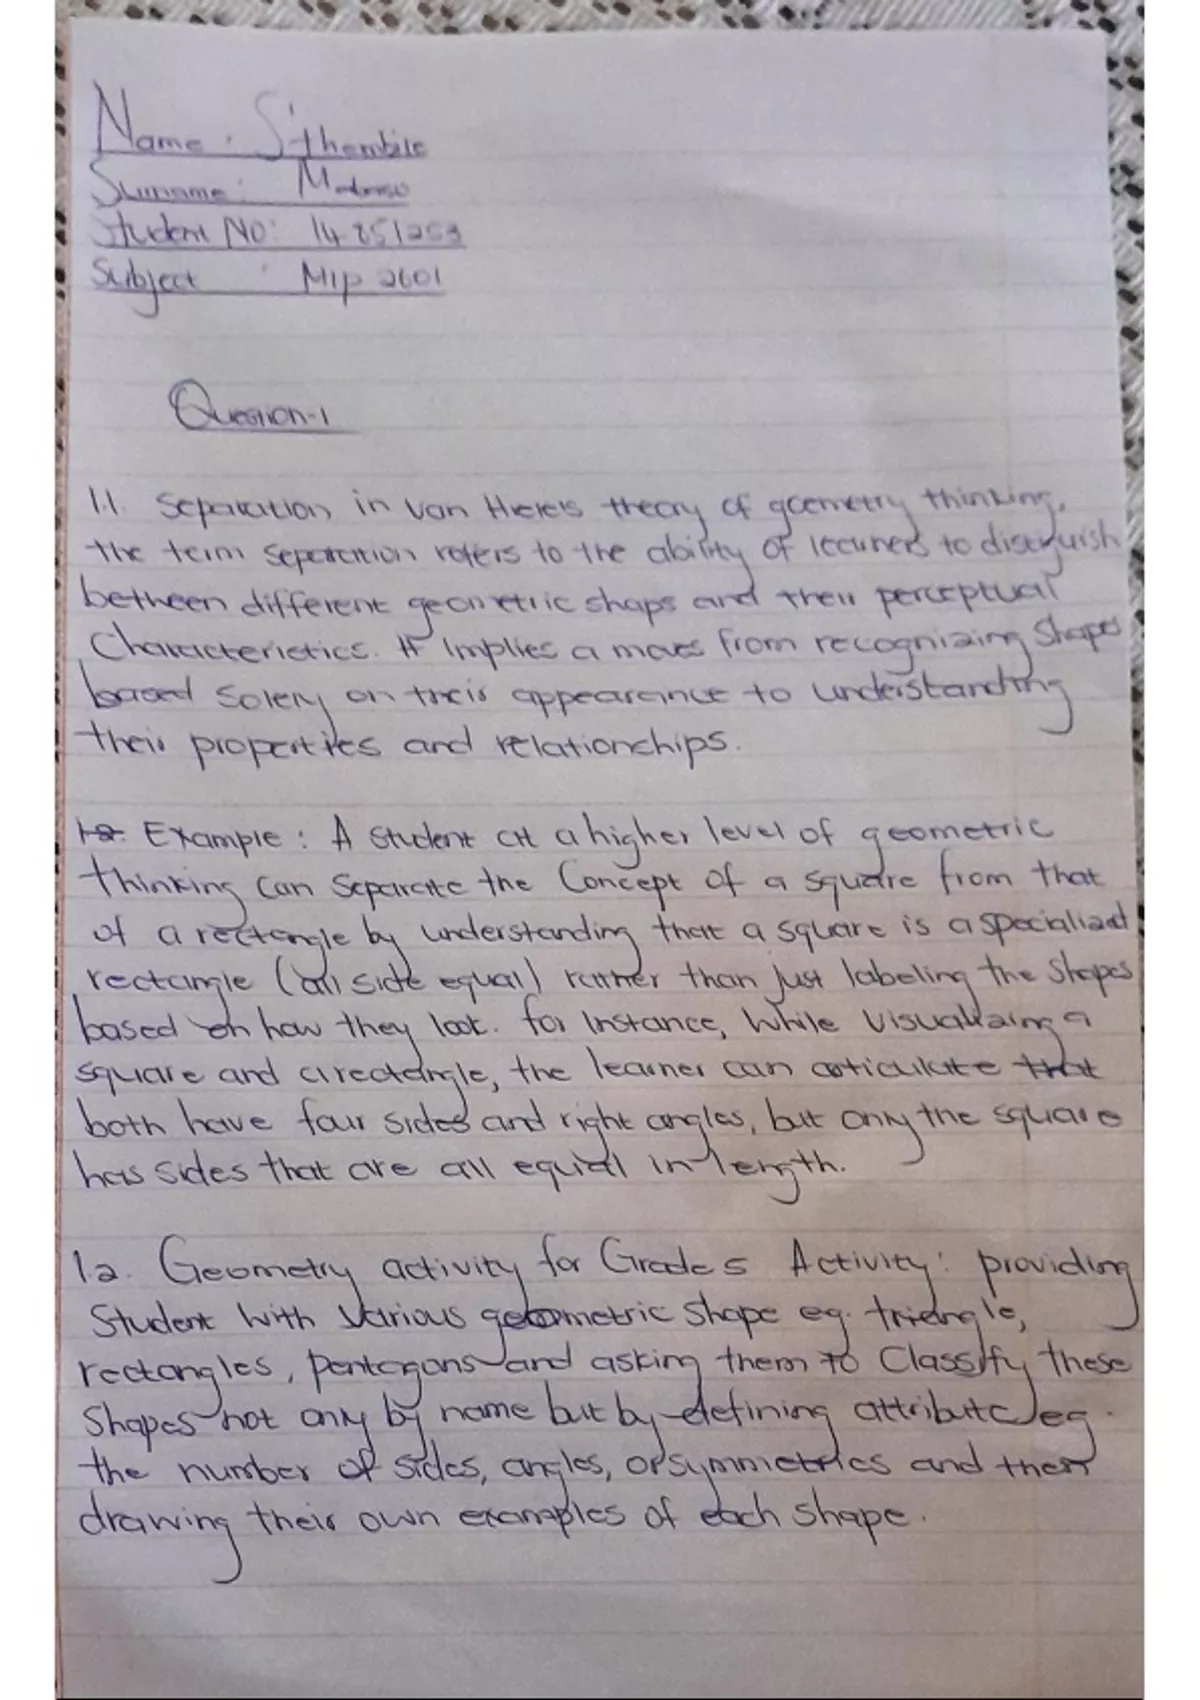 Name : Sithembile
Surname:
Student No: 14851253
Subject : MIP 2601
Question-1
1.1. Separation in Van Hiele's theory of geometry thinking,
the term separation refers to the ability of learners to distiguish
between different geometric shaps and their perceptual
Characteristics. It Implies a moves from recognizing Shapes
based Solely on their appearance to understanding
their properties and relationships.
1.2. Example : A Student at a higher level of geometric
thinking can Separate the Concept of a square from that
of a rectangle by understanding that a square is a specialized
rectangle (all side equal) rather than just labeling the Shapes
based on how they look. for Instance, While Visualizing a
square and a rectangle, the learner can articulate that
both have four sides and right angles, but only the square
has sides that are all equal in length.
1.2. Geometry activity for Grade 5 Activity: providing
Student With Various geometric Shape eg. triangle,
rectangles, pentagons and asking them to Classify these
Shapes not only by name but by defining attribute eg.
the number of sides, angles, or symmetries and then
drawing their own examples of each shape.